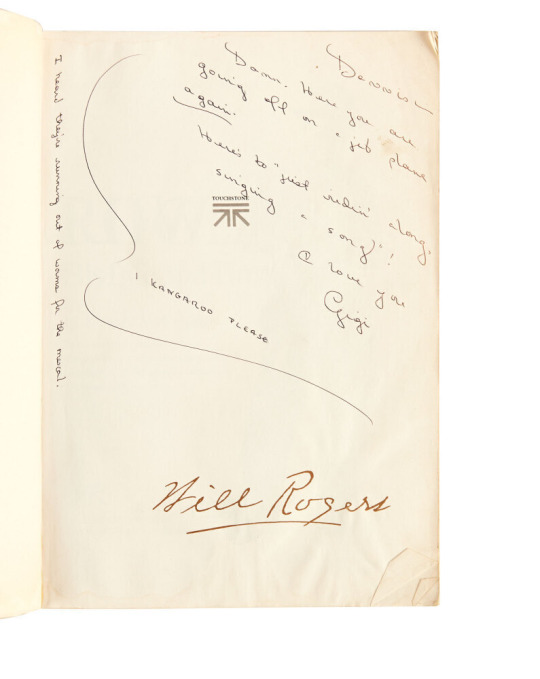 Dennis—
Damn. Here you are
going off on a jet plane
again.
Here's to "just ridin' along,
singing a song"!
I love you
Gigi
TOUCHSTONE
1 KANGAROO PLEASE
I heard they're running out of worms for the mescal.
Will Rogers